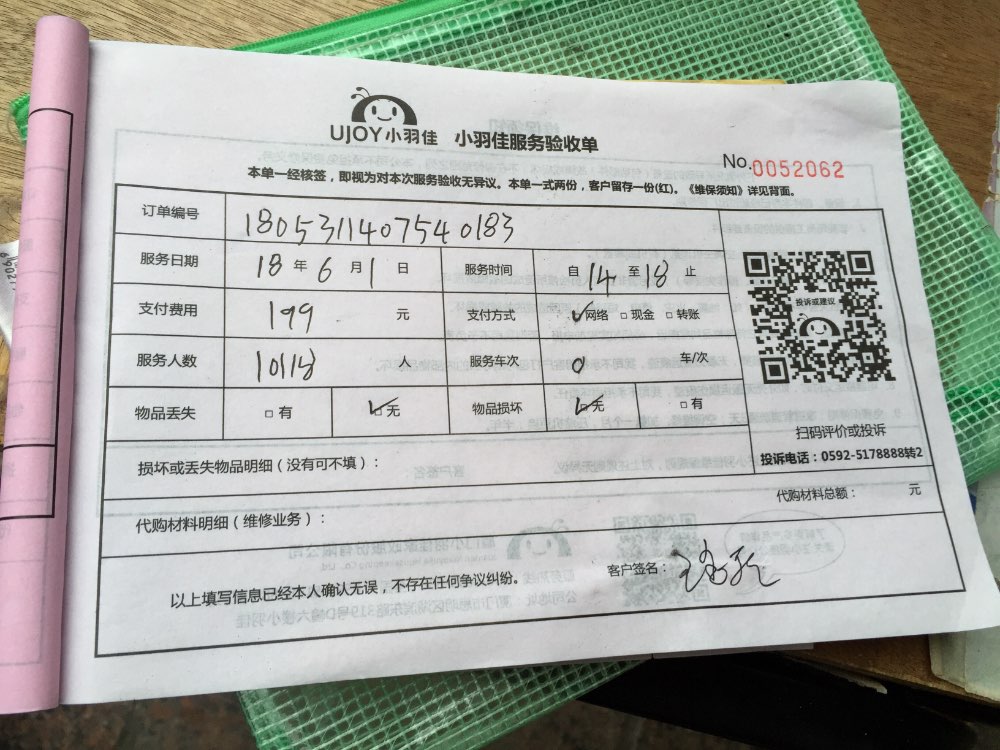 UJOY小羽佳 小羽佳服务验收单
No.0052062
本单一经核签，即视为对本次服务验收无异议。本单一式两份，客户留存一份(红)。《维保须知》详见背面。
订单编号 180531140754 0183
服务日期 18 年 6 月 1 日 服务时间 自 14 至 18 止
支付费用 199 元 支付方式 网络 □ 现金 □ 转账
服务人数 10118 人 服务车次 0 车/次
物品丢失 □ 有 无 物品损坏 无 □ 有
投诉或建议
扫码评价或投诉
投诉电话：0592-5178888转2
损坏或丢失物品明细（没有可不填）：
代购材料总额： 元
代购材料明细（维修业务）：
以上填写信息已经本人确认无误，不存在任何争议纠纷。
客户签名：